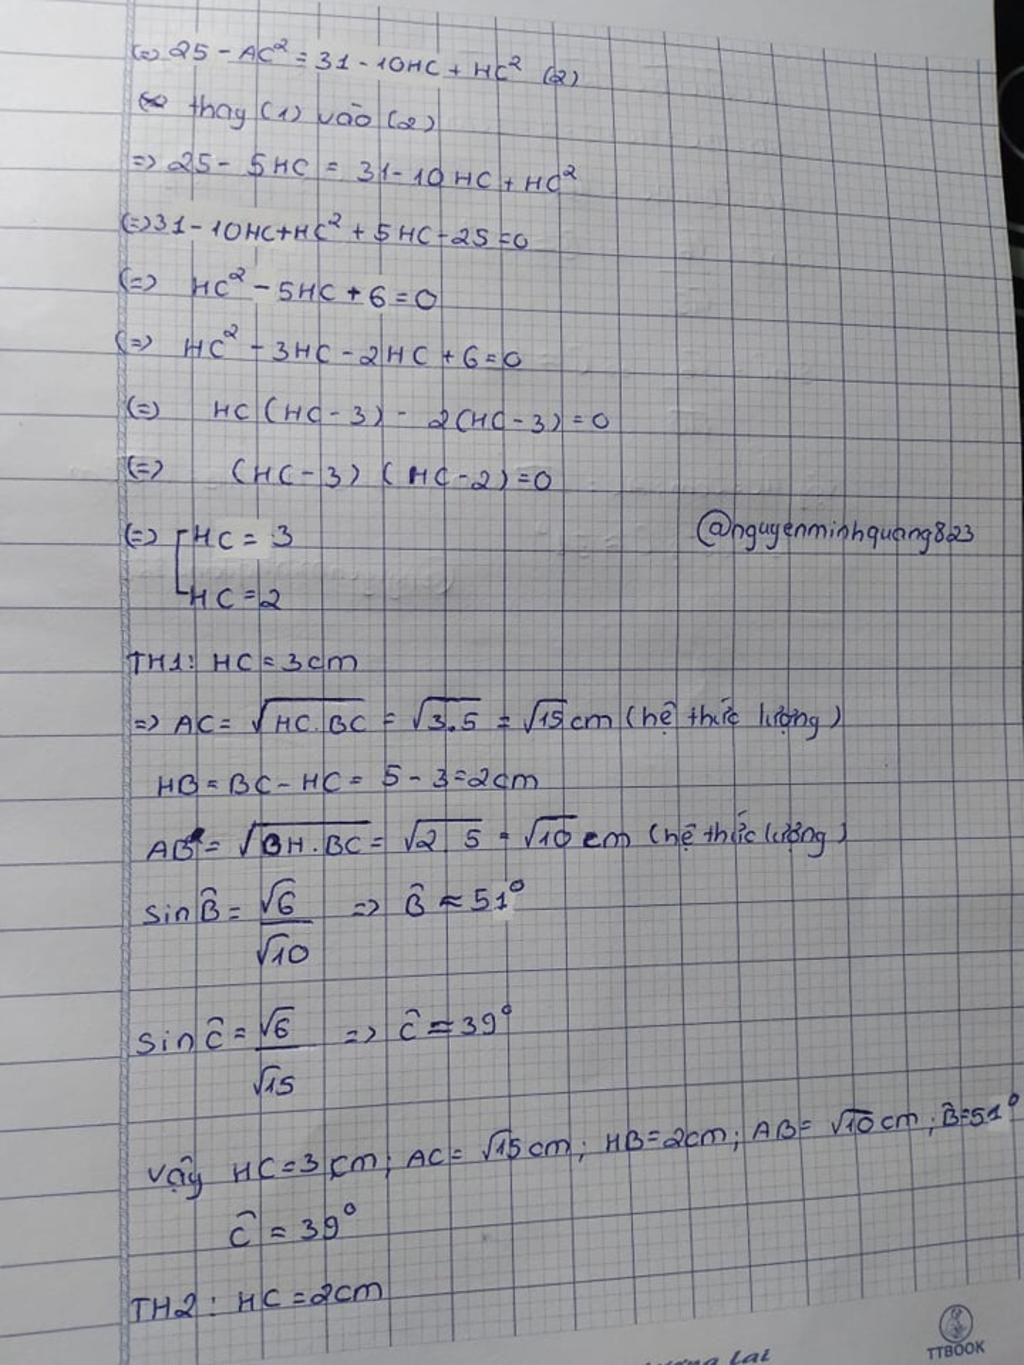 (=) 25 - AC² = 31 - 10HC + HC² (2)
thay (1) vào (2)
=> 25 - 5HC = 31 - 10HC + HC²
(=) 31 - 10HC + HC² + 5HC - 25 = 0
(=) HC² - 5HC + 6 = 0
(=) HC² - 3HC - 2HC + 6 = 0
(=) HC(HC - 3) - 2(HC - 3) = 0
(=) (HC - 3)(HC - 2) = 0
(=) [HC = 3
@nguyenminhquang823
HC = 2
TH1: HC = 3cm
=> AC = √HC.BC = √3.5 = √15 cm (hệ thức lượng)
HB = BC - HC = 5 - 3 = 2cm
AB = √BH.BC = √2 5 = √10 cm (hệ thức lượng)
sin B̂ = √6/√10 => B̂ ≈ 51°
sin Ĉ = √6/√15 => Ĉ ≈ 39°
Vậy HC = 3cm; AC = √15cm; HB = 2cm; AB = √10cm; B̂ = 51°
Ĉ = 39°
TH2: HC = 2cm
TTBOOK